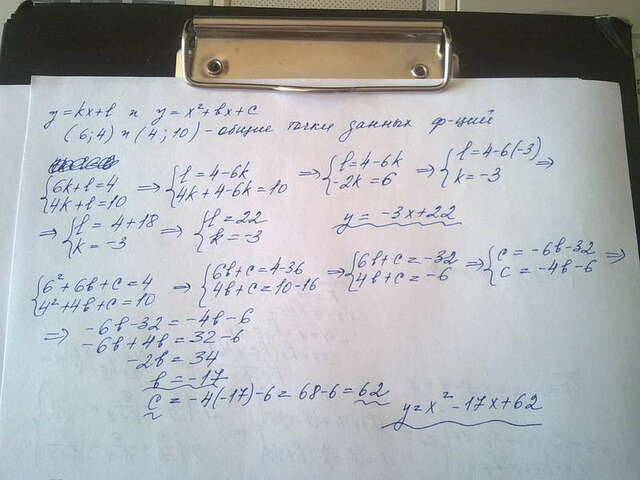 y=kx+l и y=x²+bx+c
(6;4) и (4;10) - общие точки данных ф-ций
{6k+l=4 4k+l=10 => {l=4-6k 4k+4-6k=10 => {l=4-6k -2k=6 => {l=4-6(-3) k=-3 =>
=> {l=4+18 k=-3 => {l=22 k=-3 y=-3x+22
{6²+6b+c=4 4²+4b+c=10 => {6b+c=4-36 4b+c=10-16 => {6b+c=-32 4b+c=-6 => {c=-6b-32 c=-4b-6 =>
=> -6b-32=-4b-6
-6b+4b=32-6
-2b=34
b=-17
c=-4(-17)-6=68-6=62
y=x²-17x+62